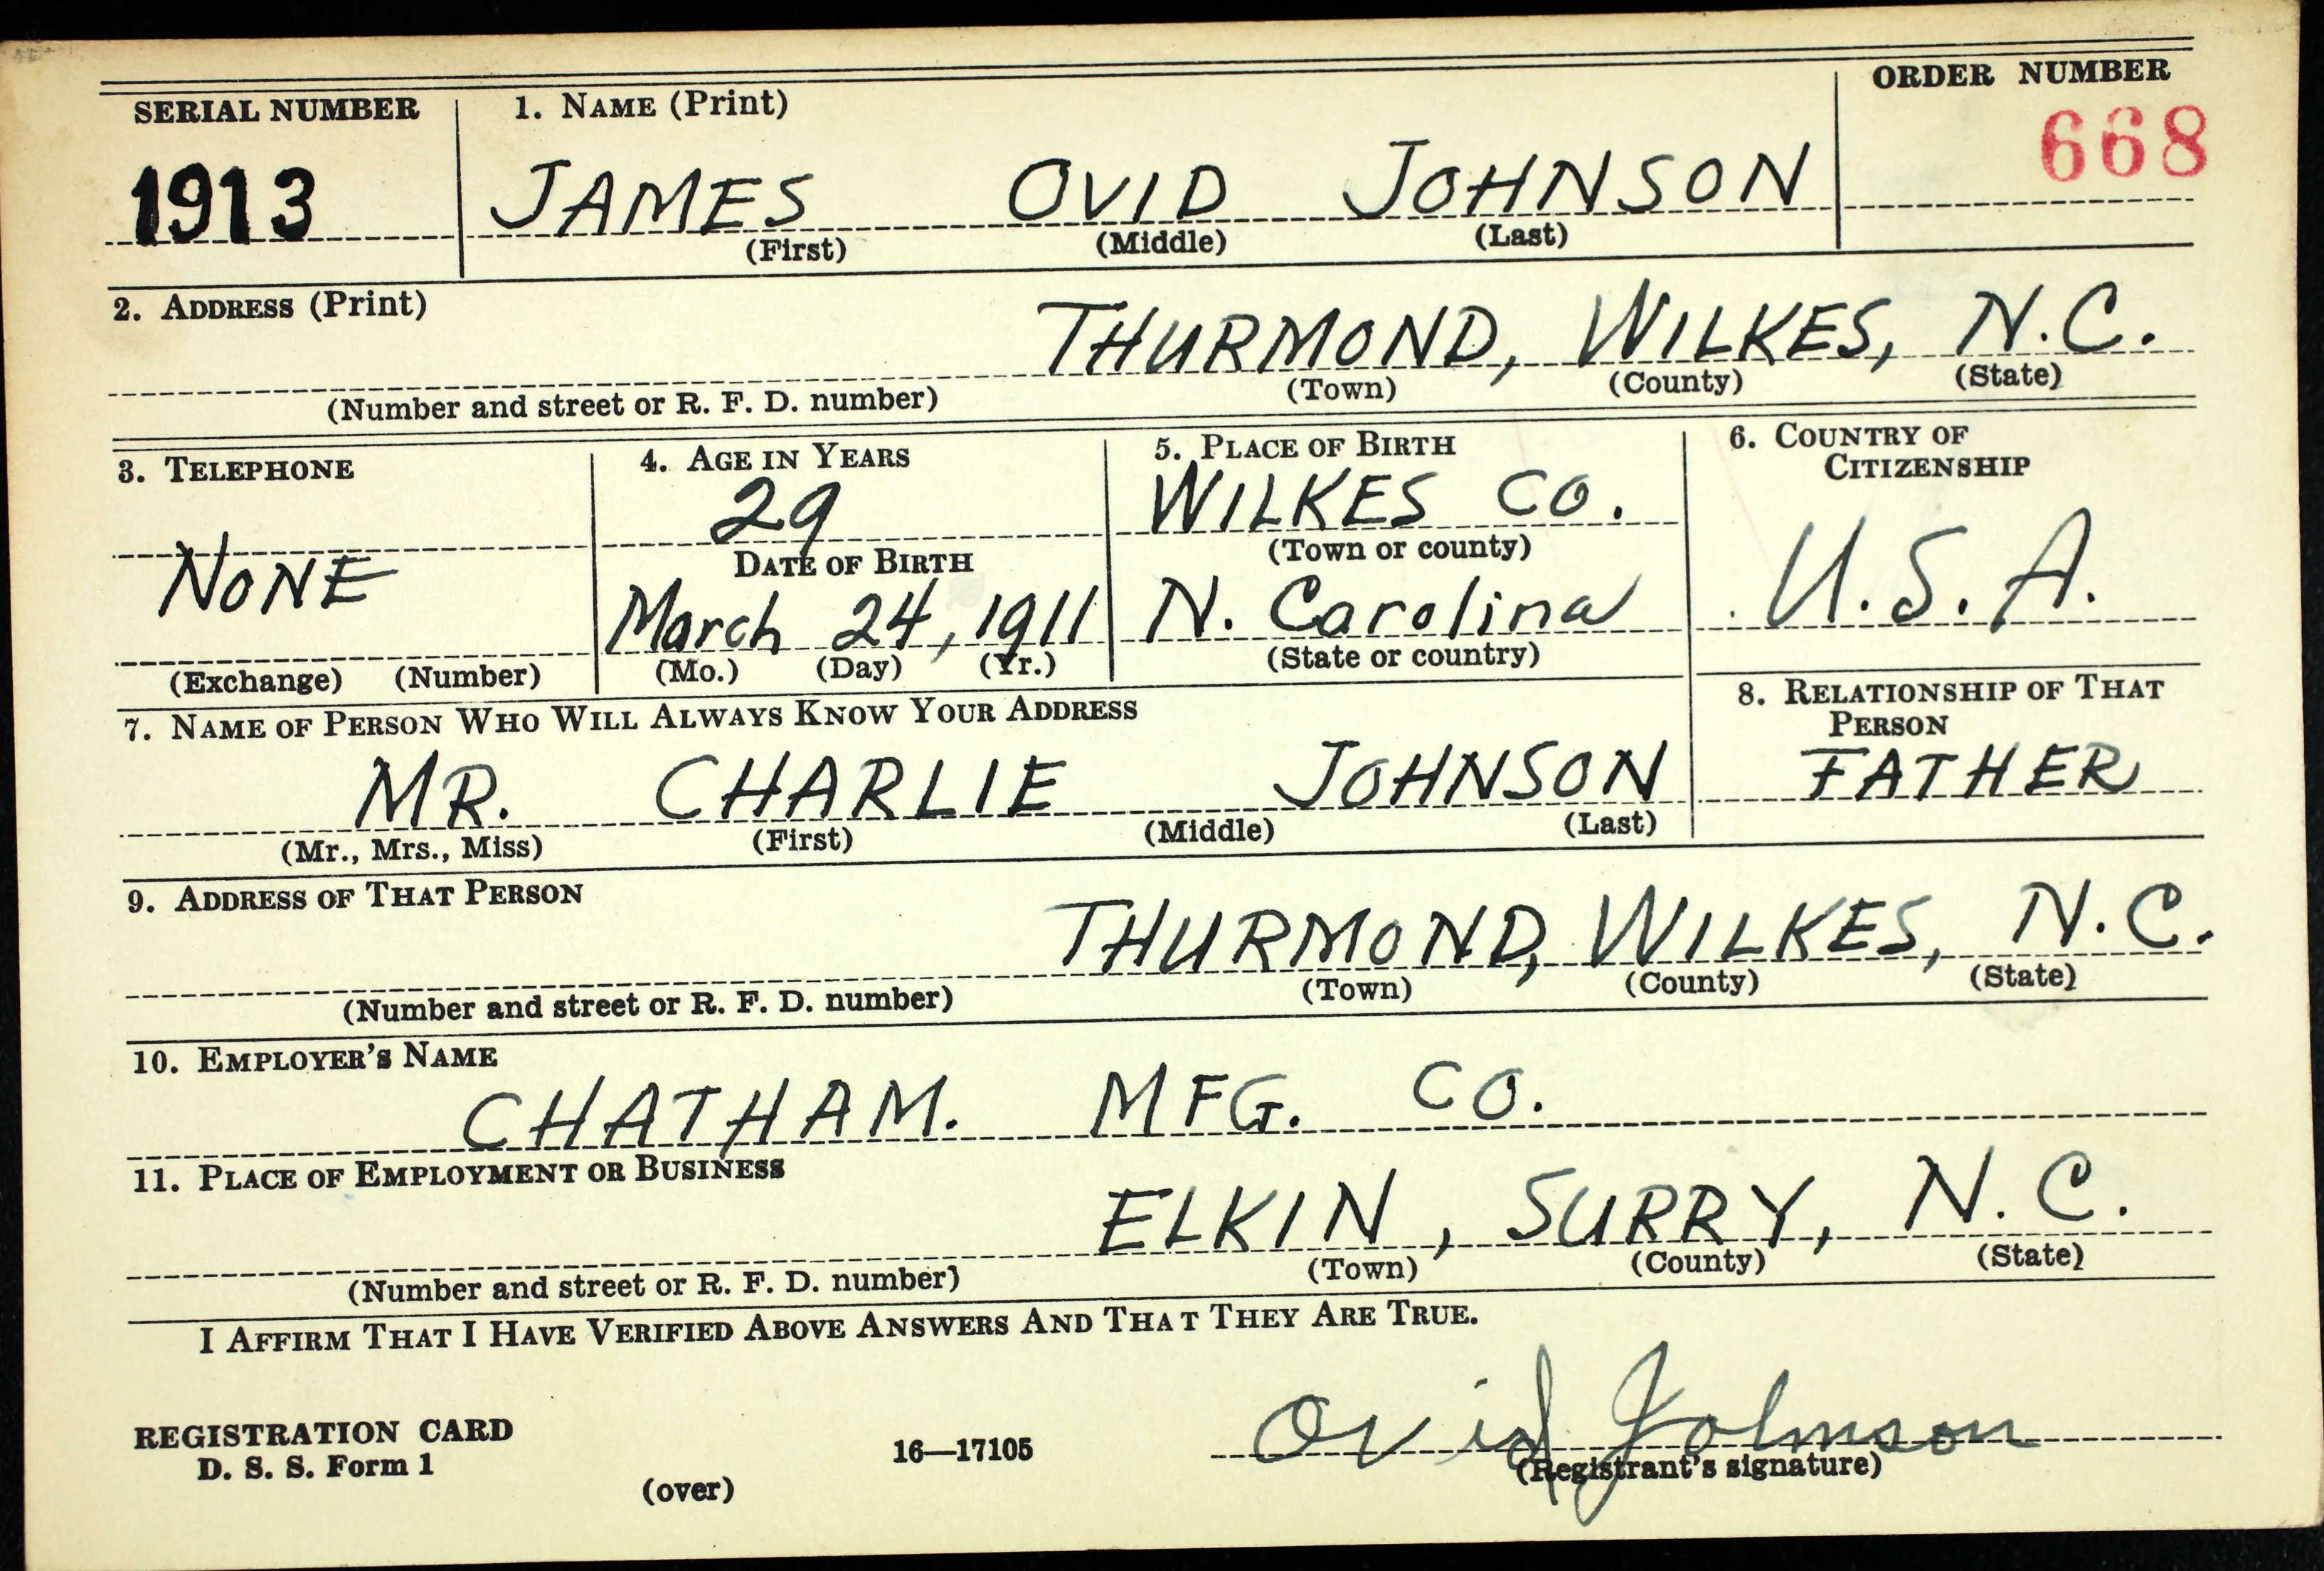 SERIAL NUMBER 1. NAME (Print) ORDER NUMBER
1913 JAMES OVID JOHNSON 668
(First) (Middle) (Last)
2. ADDRESS (Print)
THURMOND, WILKES, N.C.
(Number and street or R. F. D. number) (Town) (County) (State)
3. TELEPHONE 4. AGE IN YEARS 5. PLACE OF BIRTH 6. COUNTRY OF
CITIZENSHIP
29 WILKES CO.
DATE OF BIRTH (Town or county)
NONE March 24, 1911 N. Carolina U.S.A.
(Exchange) (Number) (Mo.) (Day) (Yr.) (State or country)
7. NAME OF PERSON WHO WILL ALWAYS KNOW YOUR ADDRESS 8. RELATIONSHIP OF THAT
PERSON
MR. CHARLIE JOHNSON FATHER
(Mr., Mrs., Miss) (First) (Middle) (Last)
9. ADDRESS OF THAT PERSON
THURMOND, WILKES, N.C.
(Number and street or R. F. D. number) (Town) (County) (State)
10. EMPLOYER'S NAME
CHATHAM. MFG. CO.
11. PLACE OF EMPLOYMENT OR BUSINESS
ELKIN, SURRY, N.C.
(Number and street or R. F. D. number) (Town) (County) (State)
I AFFIRM THAT I HAVE VERIFIED ABOVE ANSWERS AND THAT THEY ARE TRUE.
Ovid Johnson
REGISTRATION CARD
D. S. S. Form 1 16—17105 (Registrant's signature)
(over)